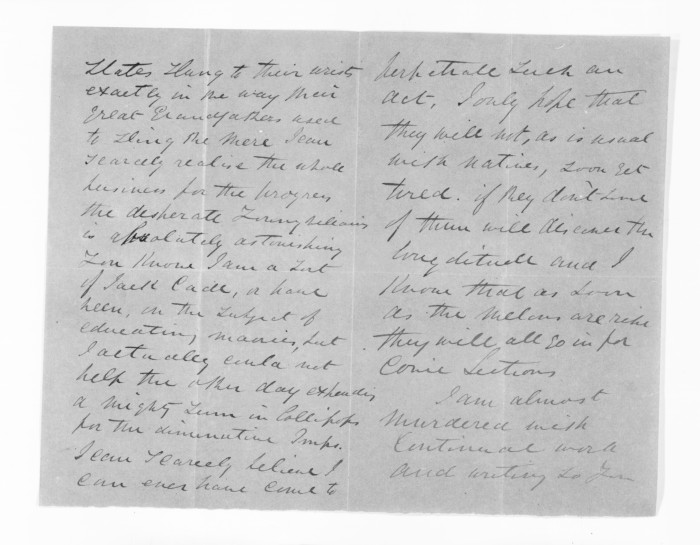 slates slung to their wrists
exactly in the way their
great Grandfathers used
to sling the mere I can
scarcely realise the whole
business for the progress
the desperate Young villains
is absolutely astonishing
You Know I am a sort
of Jack Cade, or have
been, on the subject of
educating maories, but
I actually could not
help the other day expending
a mighty sum in Lollipops
for the diminutive Imps.
I can scarcely believe I
can ever have come to
perpetrate such an
act, I only hope that
they will not, as is usual
with natives, soon get
tired. if they don't some
of them will discover the
longditude and I
Know that as soon
as the melons are ripe
they will all go in for
Conic Sections
I am almost
murdered with
Continual work
and writing to You